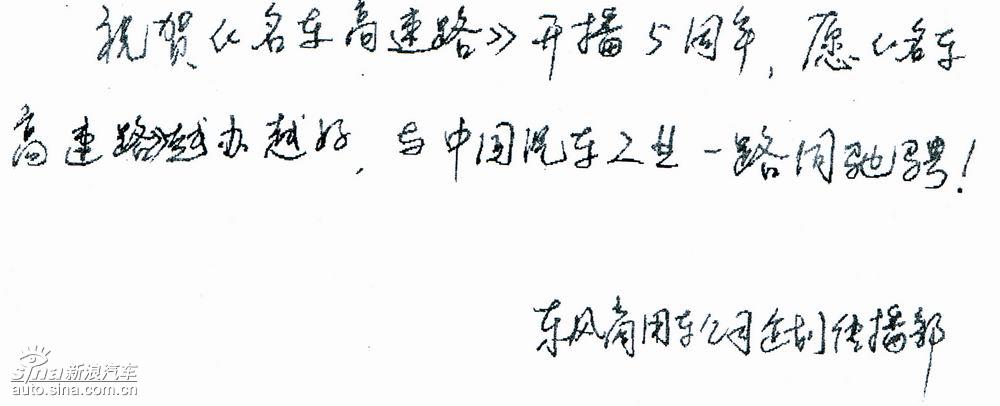 祝贺《名车高速路》开播5周年,愿《名车
高速路》越办越好,与中国汽车工业一路同驰骋!
东风商用车公司企划传播部
sina新浪汽车
auto.sina.com.cn